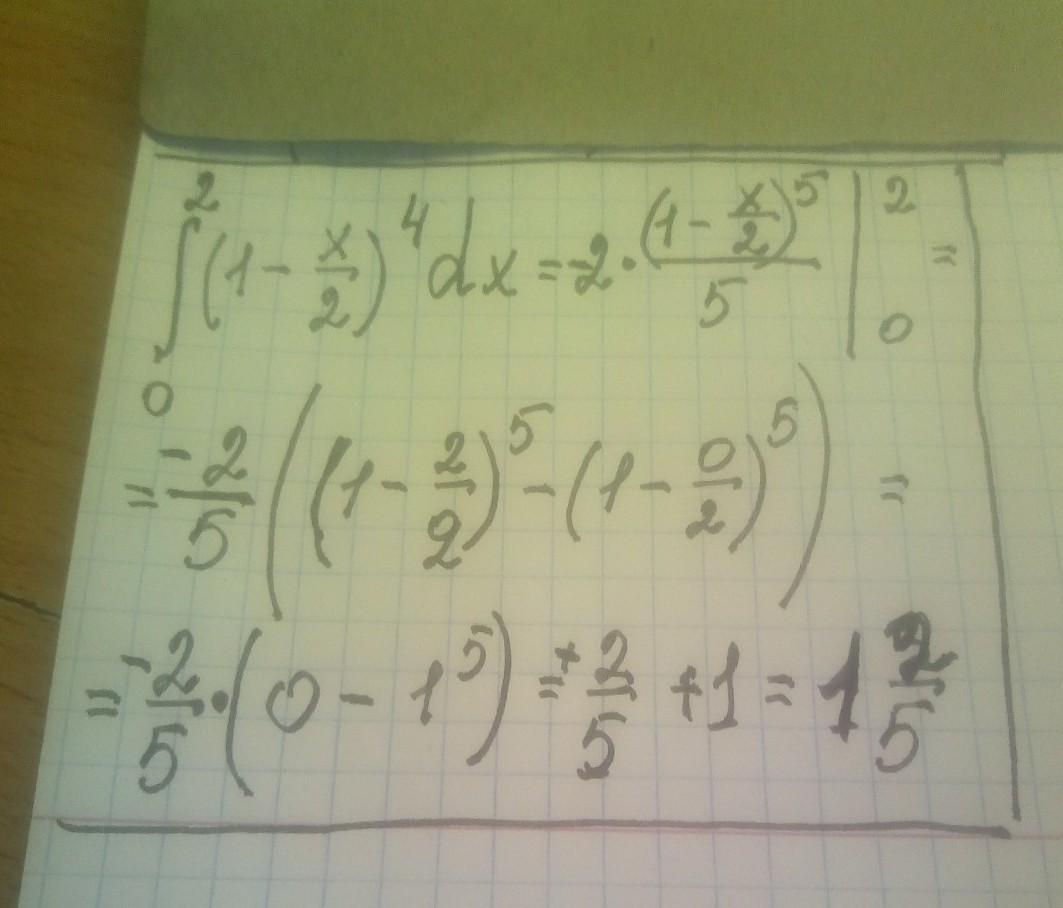 ∫₀² (1 - x/2)⁴ dx = -2 · (1 - x/2)⁵/5 |₀² =
= -2/5 ((1 - 2/2)⁵ - (1 - 0/2)⁵) =
= -2/5 · (0 - 1⁵) = +2/5 + 1 = 1 2/5